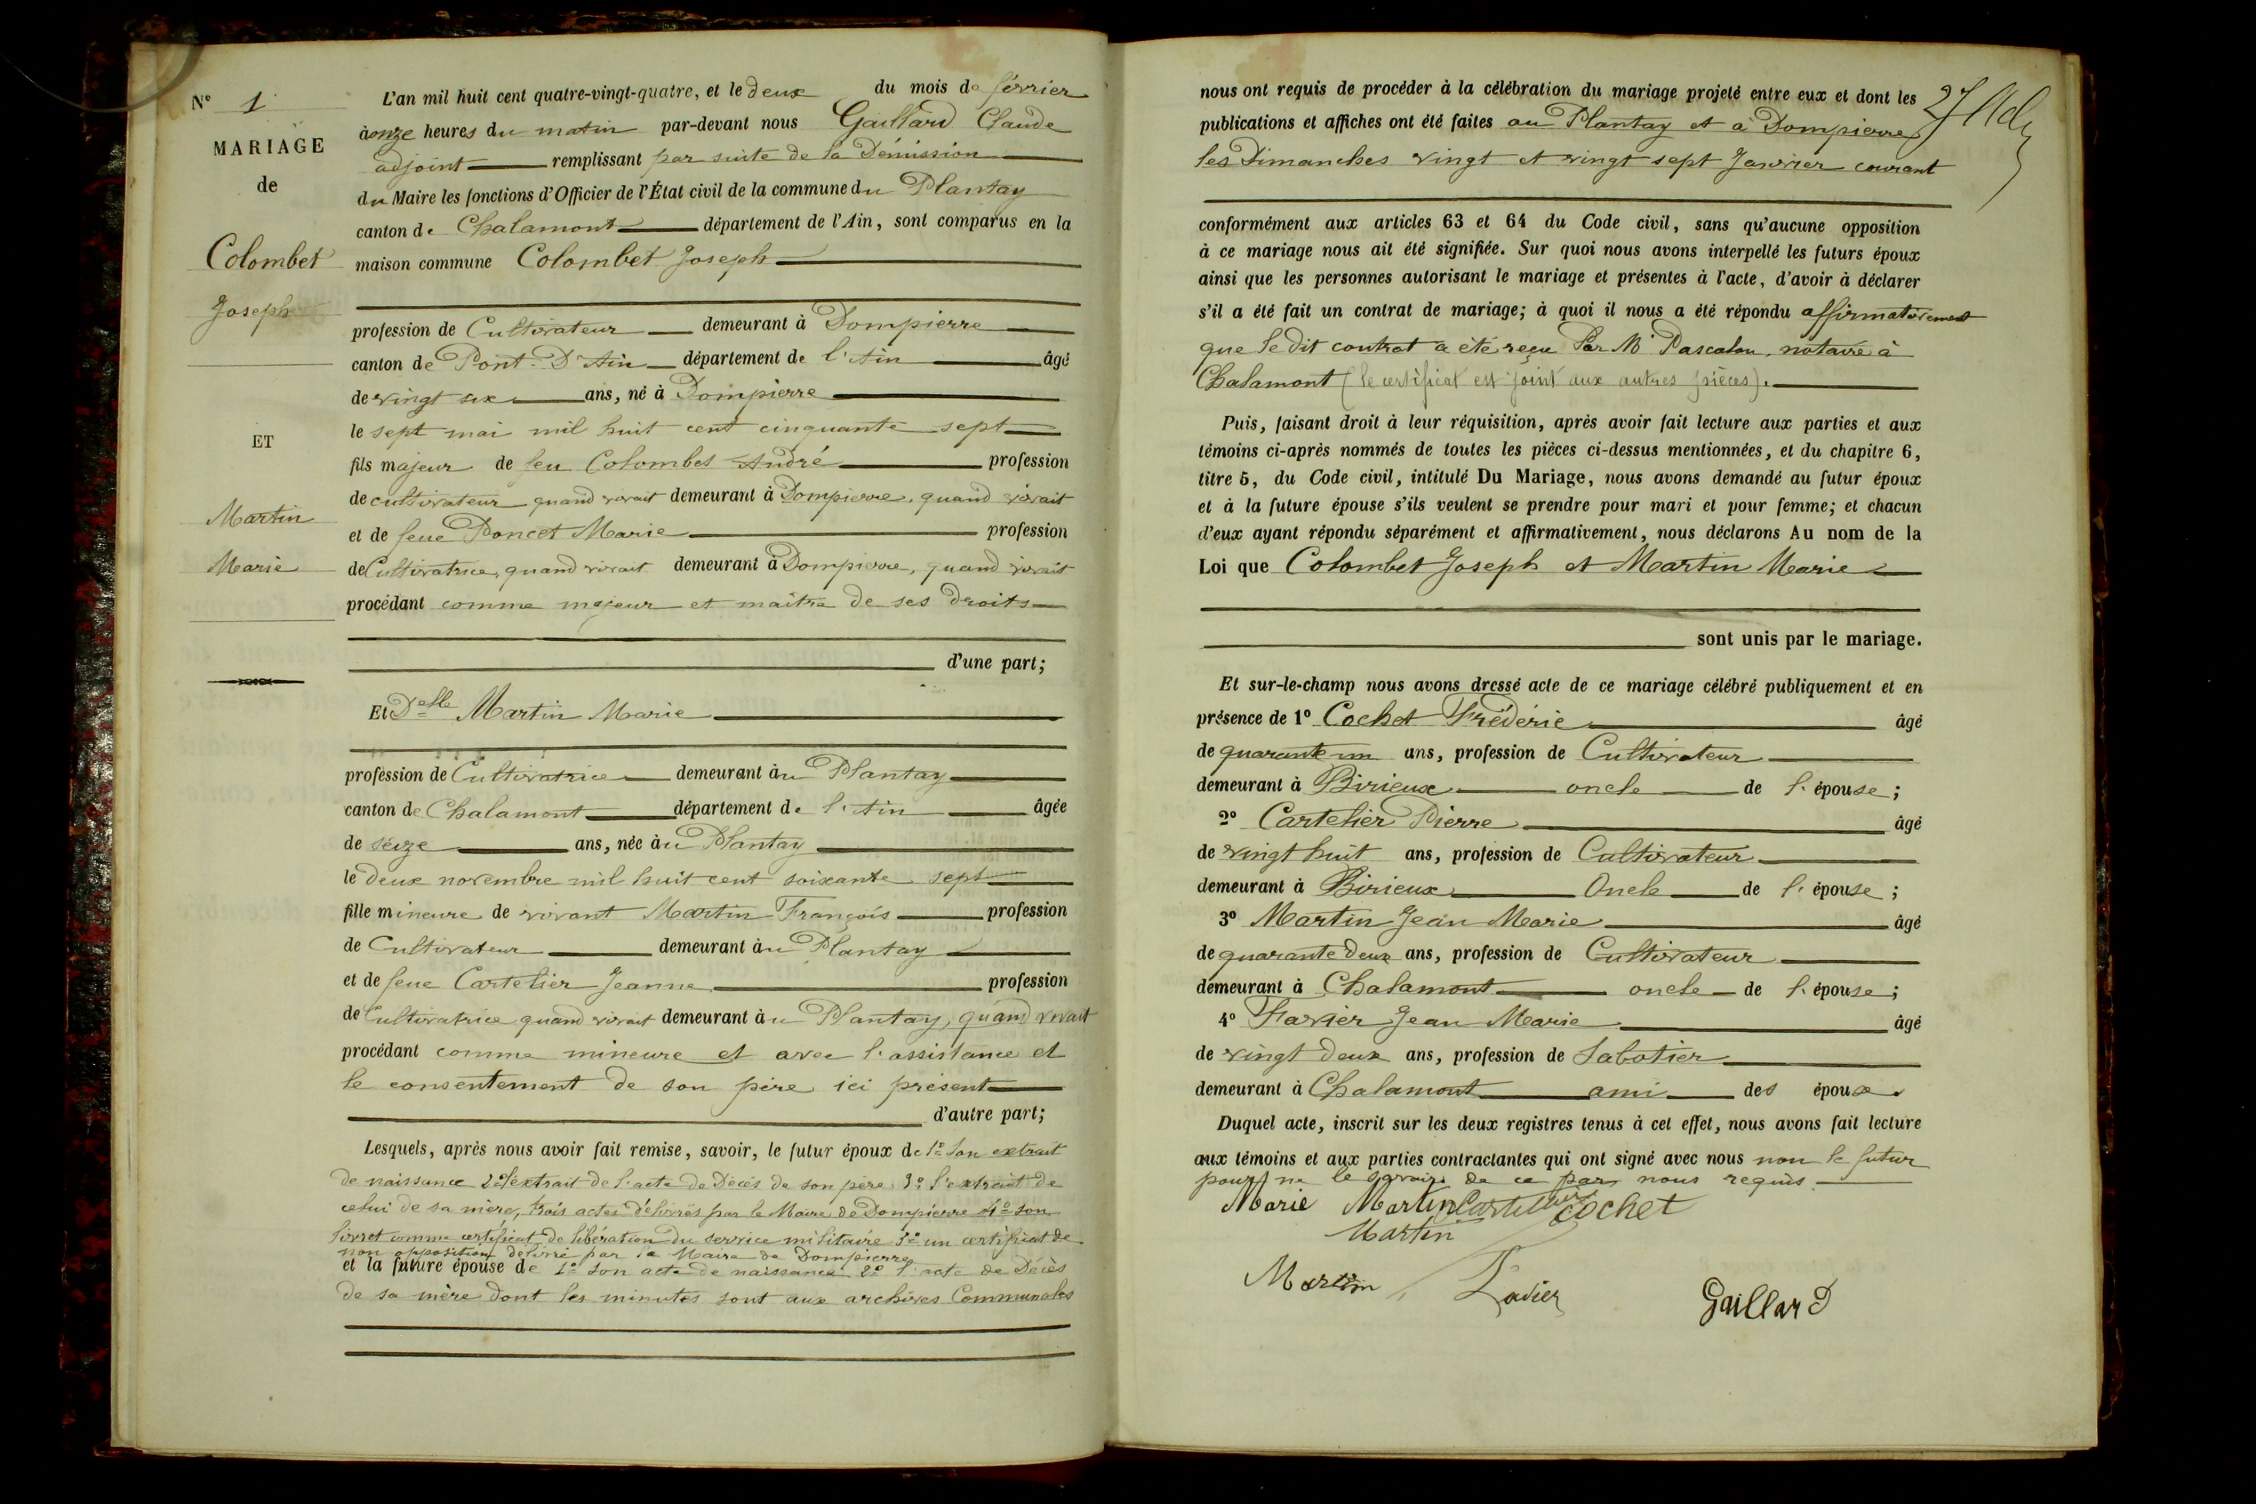 N° 1
MARIAGE
de
Colombet
Joseph
ET
Martin
Marie
L'an mil huit cent quatre-vingt-quatre, et le deux du mois de février
à onze heures du matin par-devant nous Gaillard Claude
adjoint remplissant par suite de la Démission
du Maire les fonctions d'Officier de l'État civil de la commune du Plantay
canton de Chalamont département de l'Ain, sont comparus en la
maison commune Colombet Joseph
profession de Cultivateur demeurant à Dompierre
canton de Pont-D'Ain département de l'Ain âgé
de vingt six ans, né à Dompierre
le sept mai mil huit cent cinquante sept
fils majeur de feu Colombet André profession
de cultivateur quand vivait demeurant à Dompierre, quand vivait
et de feue Poncet Marie profession
de Cultivatrice, quand vivait demeurant à Dompierre, quand vivait
procédant comme majeur et maître de ses droits
d'une part;
Et Delle Martin Marie
profession de Cultivatrice demeurant àu Plantay
canton de Chalamont département de l'Ain âgée
de seize ans, née àu Plantay
le deux novembre mil huit cent soixante sept
fille mineure de vivant Martin François profession
de Cultivateur demeurant àu Plantay
et de feue Cartelier Jeanne profession
de Cultivatrice quand vivait demeurant àu Plantay, quand vivait
procédant comme mineure et avec l'assistance et
le consentement de son père ici présent
d'autre part;
Lesquels, après nous avoir fait remise, savoir, le futur époux de 1° Son extrait
de naissance 2° l'extrait de l'acte de Décès de son père 3° l'extrait de
celui de sa mère, trois actes délivrés par le Maire de Dompierre 4° son
livret comme certificat de libération du service militaire 5° un certificat de
non opposition délivré par le Maire de Dompierre
et la future épouse de 1° Son acte de naissance 2° l'acte de Décès
de sa mère dont les minutes sont aux archives Communales
nous ont requis de procéder à la célébration du mariage projeté entre eux et dont les
publications et affiches ont été faites au Plantay et à Dompierre
les Dimanches vingt et vingt sept Janvier courant
conformément aux articles 63 et 64 du Code civil, sans qu'aucune opposition
à ce mariage nous ait été signifiée. Sur quoi nous avons interpellé les futurs époux
ainsi que les personnes autorisant le mariage et présentes à l'acte, d'avoir à déclarer
s'il a été fait un contrat de mariage; à quoi il nous a été répondu affirmativement
que le dit contrat a été reçu Par Me Pascalon, notaire à
Chalamont (le certificat est joint aux autres pièces).
Puis, faisant droit à leur réquisition, après avoir fait lecture aux parties et aux
témoins ci-après nommés de toutes les pièces ci-dessus mentionnées, et du chapitre 6,
titre 5, du Code civil, intitulé Du Mariage, nous avons demandé au futur époux
et à la future épouse s'ils veulent se prendre pour mari et pour femme; et chacun
d'eux ayant répondu séparément et affirmativement, nous déclarons Au nom de la
Loi que Colombet Joseph et Martin Marie
sont unis par le mariage.
Et sur-le-champ nous avons dressé acte de ce mariage célébré publiquement et en
présence de 1° Cochet Frédéric âgé
de quarante un ans, profession de Cultivateur
demeurant à Birieux oncle de l'épouse;
2° Cartelier Pierre âgé
de vingt huit ans, profession de Cultivateur
demeurant à Birieux Oncle de l'épouse;
3° Martin Jean Marie âgé
de quarante deux ans, profession de Cultivateur
demeurant à Chalamont oncle de l'épouse;
4° Favier Jean Marie âgé
de vingt deux ans, profession de Sabotier
demeurant à Chalamont ami des époux.
Duquel acte, inscrit sur les deux registres tenus à cet effet, nous avons fait lecture
aux témoins et aux parties contractantes qui ont signé avec nous non le futur
pour ne le savoir de ce par nous requis
Marie Martin Cartelier Cochet
Martin
Martin Favier
Gaillard